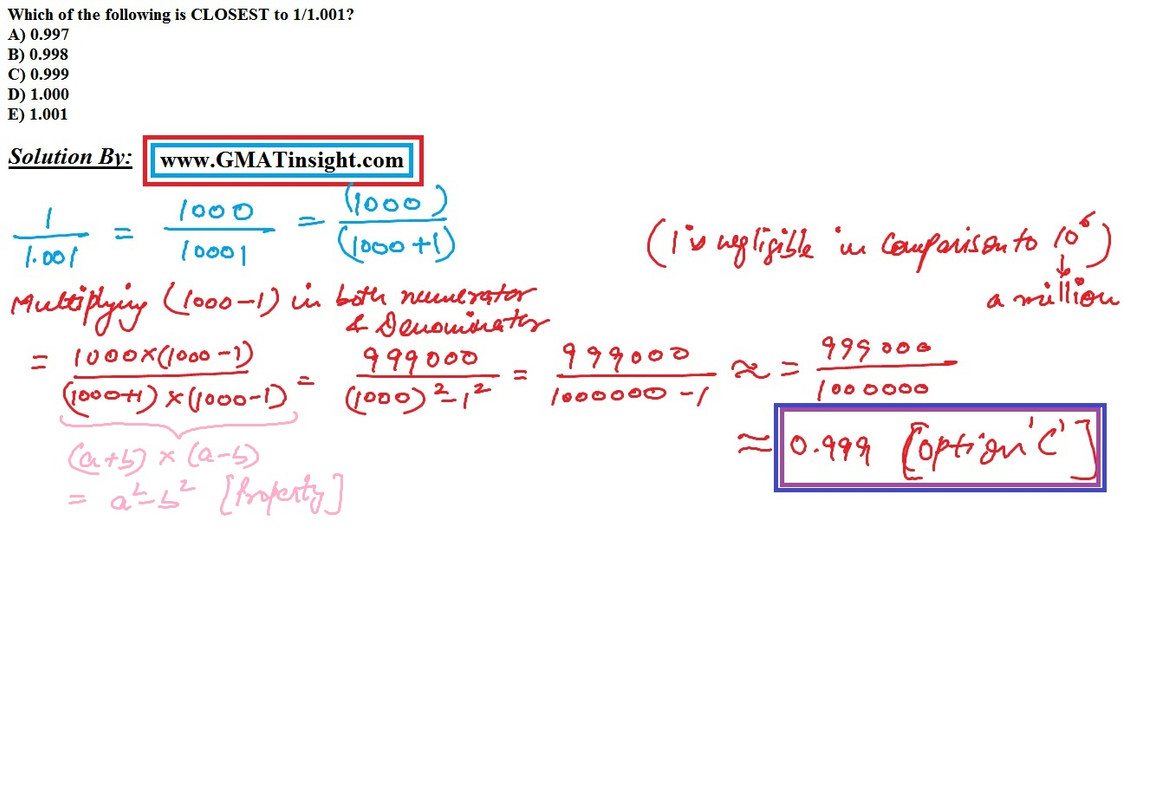 Which of the following is CLOSEST to 1/1.001?
A) 0.997
B) 0.998
C) 0.999
D) 1.000
E) 1.001
Solution By: www.GMATinsight.com
1/1.001 = 1000/10001 = (1000)/(1000+1)
(1 is negligible in comparison to 10^6)
↓
a million
Multiplying (1000-1) in both numerator
& Denominator
= 1000×(1000-1)/(1000+1)×(1000-1) = 999000/(1000)^2-1^2 = 999000/1000000-1 ≈ = 999000/1000000
(a+b) × (a-b)
= a^2-b^2 [Property]
≈ 0.999 [option 'C']